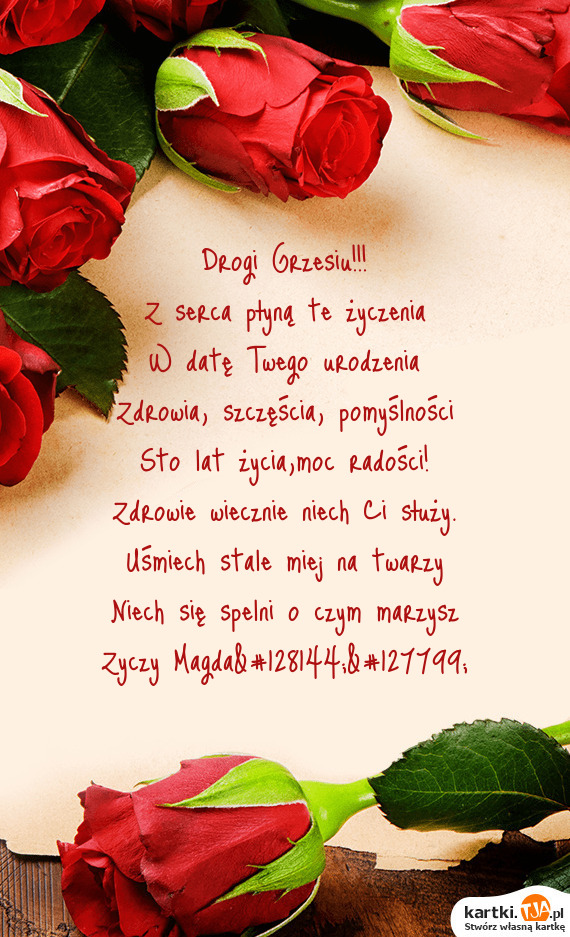 Drogi Grzesiu!!!
Z serca płyną te życzenia
W datę Twego urodzenia
Zdrowia, szczęścia, pomyślności
Sto lat życia,moc radości!
Zdrowie wiecznie niech Ci służy.
Uśmiech stale miej na twarzy
Niech się spełni o czym marzysz
Życzy Magda&#128144;&#127799;
kartki.TJA.pl
Stwórz własną kartkę